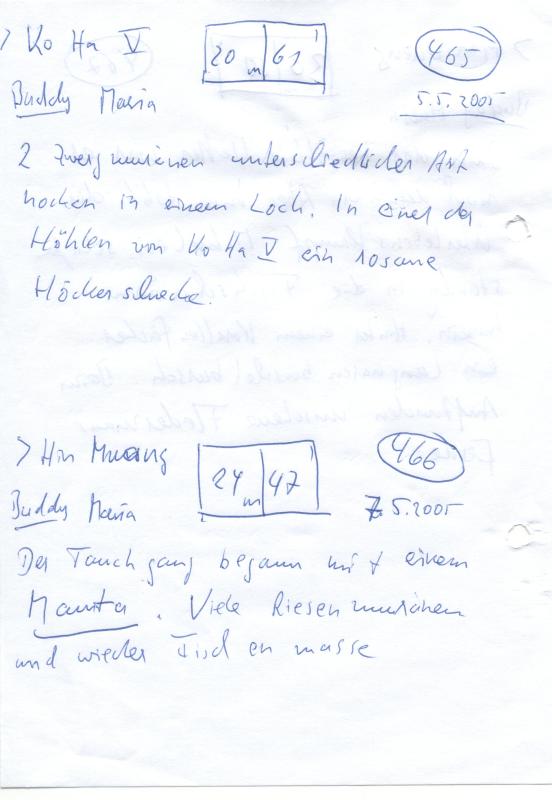 > Ko Ha V
20 m | 61'
465
Buddy Maria
5.5.2005
2 Zwergmuränen unterschiedlicher Art
hocken in einem Loch. In einer der
Höhlen von Ko Ha V ein rosane
Höckerschnecke.
> Hin Mueang
24 m | 47'
466
Buddy Maria
7.5.2005
Der Tauchgang begann mit einem
Manta. Viele Riesenmuränen
und wieder Fisch en masse